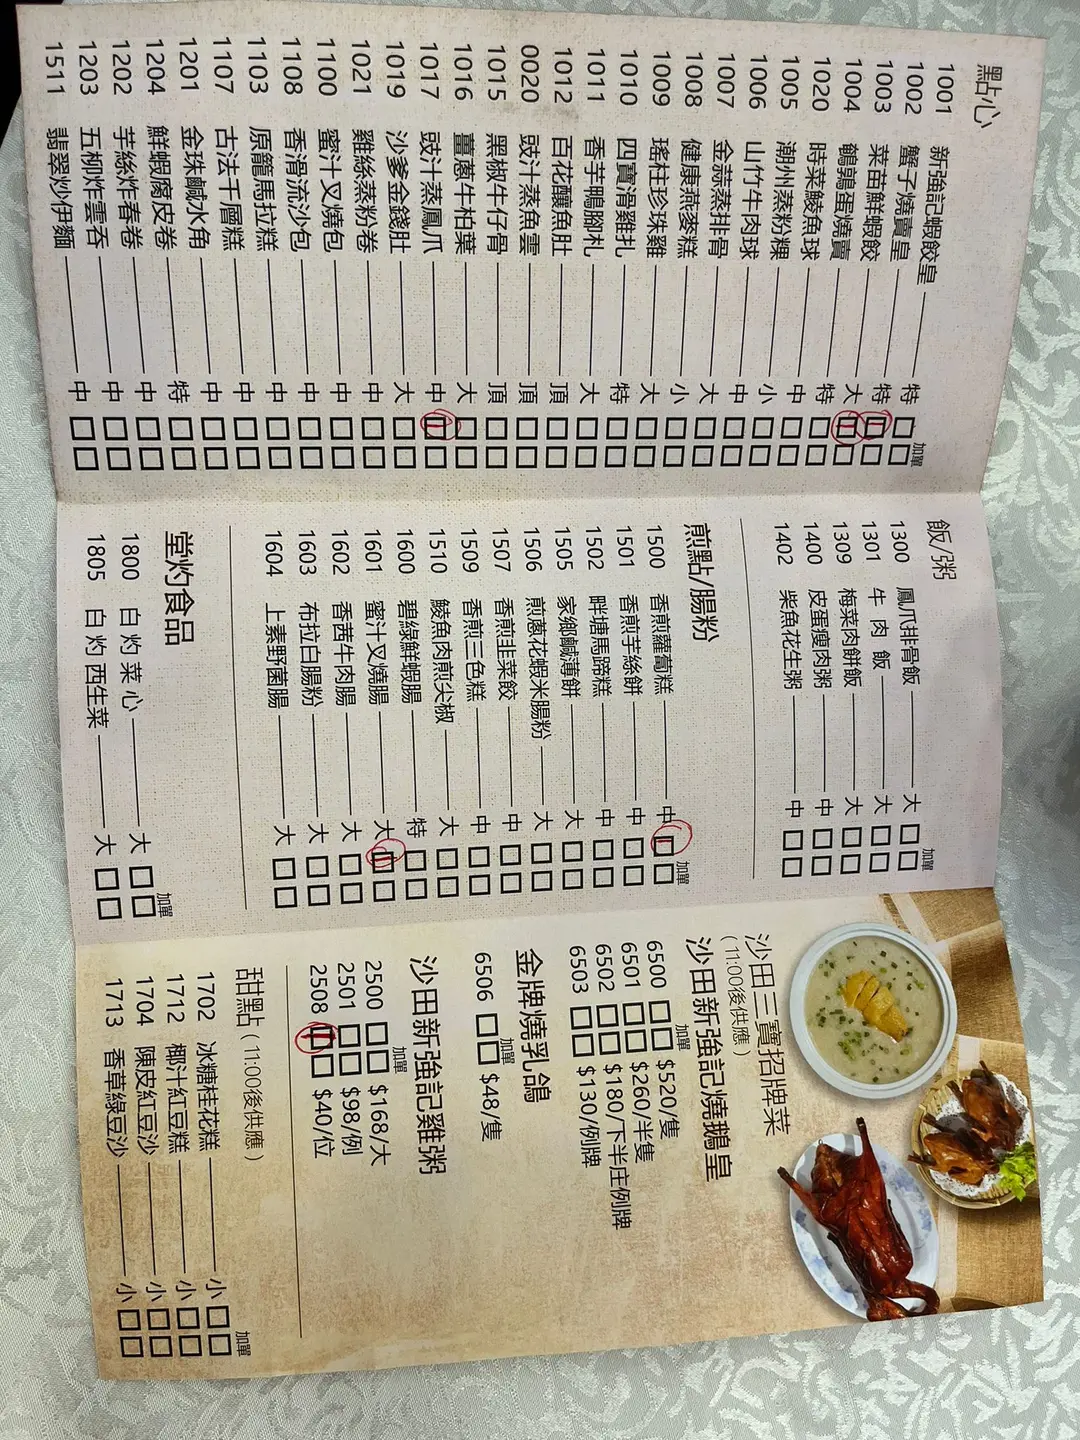 點心
加單
1001 新強記蝦餃皇 特
1002 蟹子燒賣皇 特
1003 菜苗鮮蝦餃 大
1004 鵪鶉蛋燒賣 特
1020 時菜鯪魚球 中
1005 潮州蒸粉粿 小
1006 山竹牛肉球 中
1007 金蒜蒸排骨 大
1008 健康燕麥糕 小
1009 瑤柱珍珠雞 大
1010 四寶滑雞扎 特
1011 香芋鴨腳札 大
1012 百花釀魚肚 頂
0020 豉汁蒸魚雲 頂
1015 黑椒牛仔骨 頂
1016 薑蔥牛柏葉 大
1017 豉汁蒸鳳爪 中
1019 沙爹金錢肚 大
1021 雞絲蒸粉卷 中
1100 蜜汁叉燒包 中
1108 香滑流沙包 中
1103 原籠馬拉糕 中
1107 古法千層糕 中
1201 金珠鹹水角 中
1204 鮮蝦腐皮卷 特
1202 芋絲炸春卷 中
1203 五柳炸雲吞 中
1511 翡翠炒伊麵 中
飯/粥
加單
1300 鳳爪排骨飯 大
1301 牛肉飯 大
1309 梅菜肉餅飯 大
1400 皮蛋瘦肉粥 中
1402 柴魚花生粥 中
煎點/腸粉
加單
1500 香煎蘿蔔糕 中
1501 香煎芋絲餅 中
1502 畔塘馬蹄糕 中
1505 家鄉鹹薄餅 大
1506 煎蔥花蝦米腸粉 大
1507 香煎韭菜餃 中
1509 香煎三色糕 中
1510 鯪魚肉煎尖椒 大
1600 碧綠鮮蝦腸 特
1601 蜜汁叉燒腸 大
1602 香茜牛肉腸 大
1603 布拉白腸粉 大
1604 上素野菌腸 大
堂灼食品
加單
1800 白灼菜心 大
1805 白灼西生菜 大
沙田三寶招牌菜
(11:00後供應)
沙田新強記燒鵝皇
加單
6500 $520/隻
6501 $260/半隻
6502 $180/下半庄例牌
6503 $130/例牌
金牌燒乳鴿
加單
6506 $48/隻
沙田新強記雞粥
加單
2500 $168/大
2501 $98/例
2508 $40/位
甜點(11:00後供應)
加單
1702 冰糖桂花糕 小
1712 椰汁紅豆糕 小
1704 陳皮紅豆沙 小
1713 香草綠豆沙 小